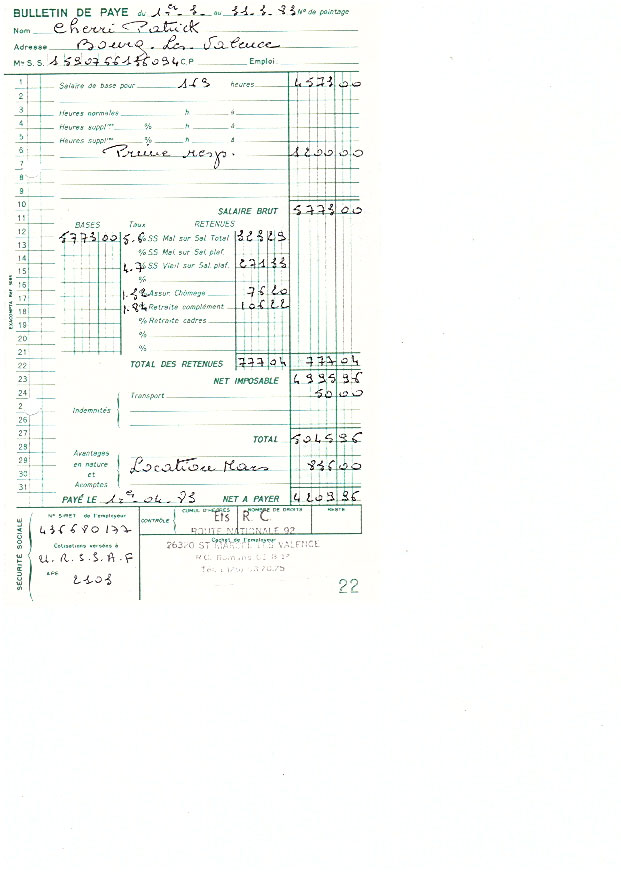 BULLETIN DE PAYE du 1er_3_ au 31_3_83 N° de pointage
Nom Cherri Patrick
Adresse Bourg-Les-Valence
Mle S.S. C.P. Emploi
1 Salaire de base pour 169 heures 4573 00
2
3 Heures normales h à
4 Heures supplres % h à
5 Heures supplres % h à
6 Prime resp. 1200 00
7
8
9
10 SALAIRE BRUT 5773 00
11 BASES Taux RETENUES
12 5773 00 5.6 SS Mal sur Sal Total 323 29
13 % SS Mal sur Sal plaf.
14 4.7 SS Vieil sur Sal. plaf. 271 33
15 %
16 1.32 Assur. Chômage 76 20
17 1.84 Retraite complémt 106 22
18 % Retraite cadres
19 %
20 %
21
22 TOTAL DES RETENUES 777 04 777 04
23 NET IMPOSABLE 4995 96
24 Transport 50 00
2 Indemnités
26
27 TOTAL 5045 96
28 Avantages
29 en nature Location Mars 836 00
30 et
Acomptes
31 PAYÉ LE 1er_04_83 NET A PAYER 4209 96
EXACOMPTA PAT 3098
SÉCURITÉ SOCIALE
N° SIRET de l'employeur
Cotisations versées à
U.R.S.S.A.F
APE 2103
CONTRÔLE
CUMUL D'HEURES NOMBRE DE DROITS RESTE
Ets R.C.
ROUTE NATIONALE 92
Cachet de l'employeur
VALENCE
22